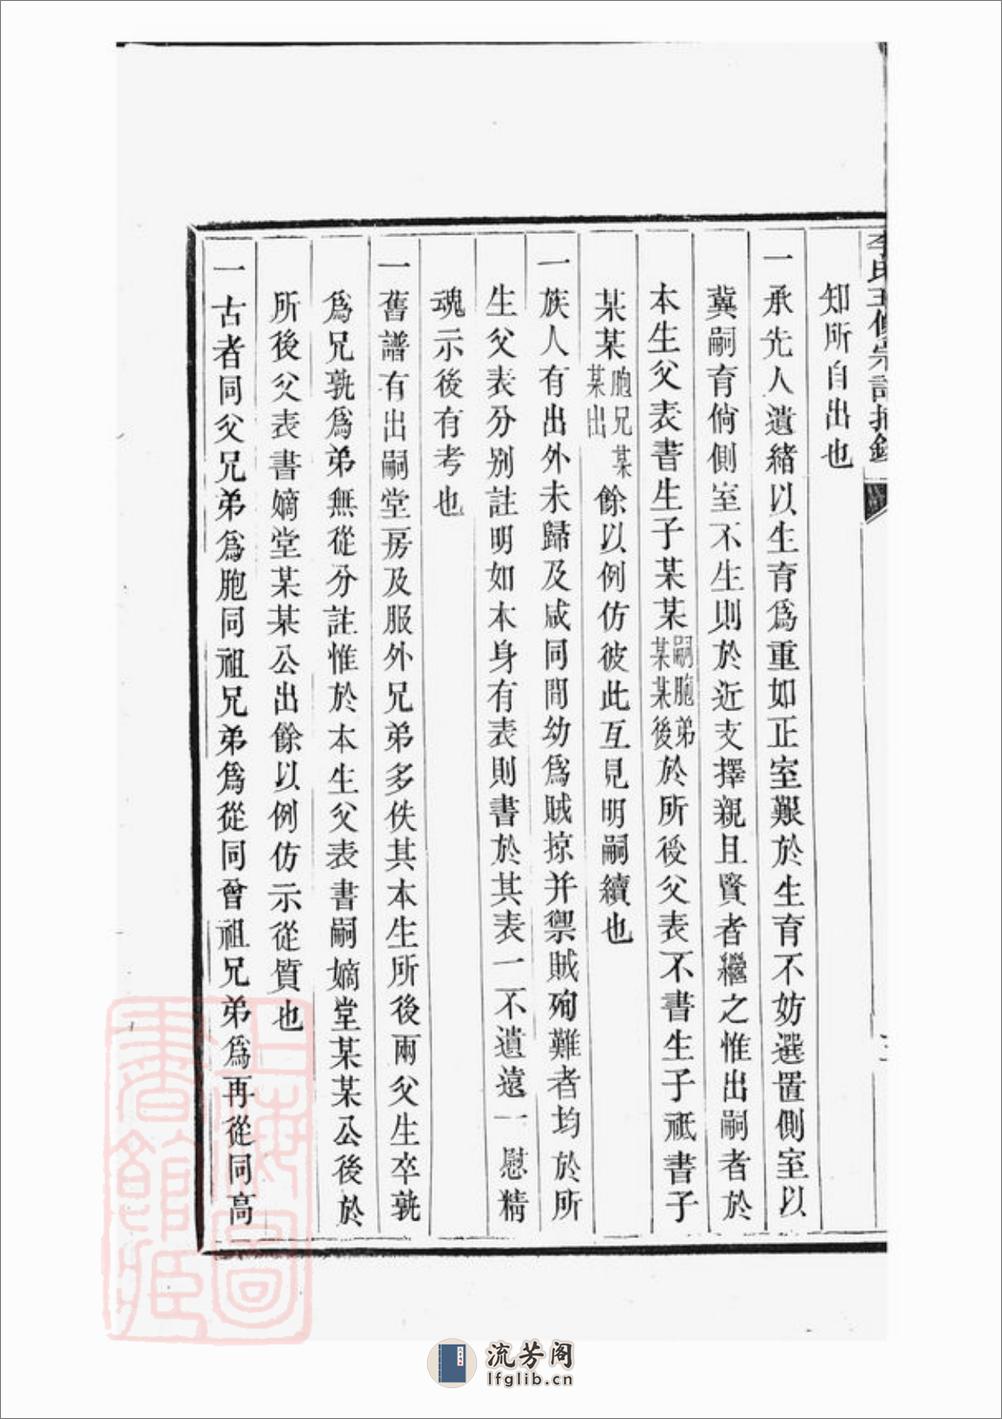 李氏五修宗譜摘錄
知所自出也
一承先人遺緒以生育爲重如正室艱於生育不妨選置側室以
冀嗣育倘側室不生則於近支擇親且賢者繼之惟出嗣者於
本生父表書生子某某嗣胞弟某某後於所後父表不書生子祇書子
某某胞兄某某出餘以例仿彼此互見明嗣續也
一族人有出外未歸及咸同間幼爲賊掠并禦賊殉難者均於所
生父表分別註明如本身有表則書於其表一不遺遠一慰精
魂示後有考也
一舊譜有出嗣堂房及服外兄弟多佚其本生所後兩父生卒孰
爲兄孰爲弟無從分註惟於本生父表書嗣嫡堂某某公後於
所後父表書嫡堂某某公出餘以例仿示從質也
一古者同父兄弟爲胞同祖兄弟爲從同曾祖兄弟爲再從同高
上海圖書館藏
流芳阁
lfglib.cn